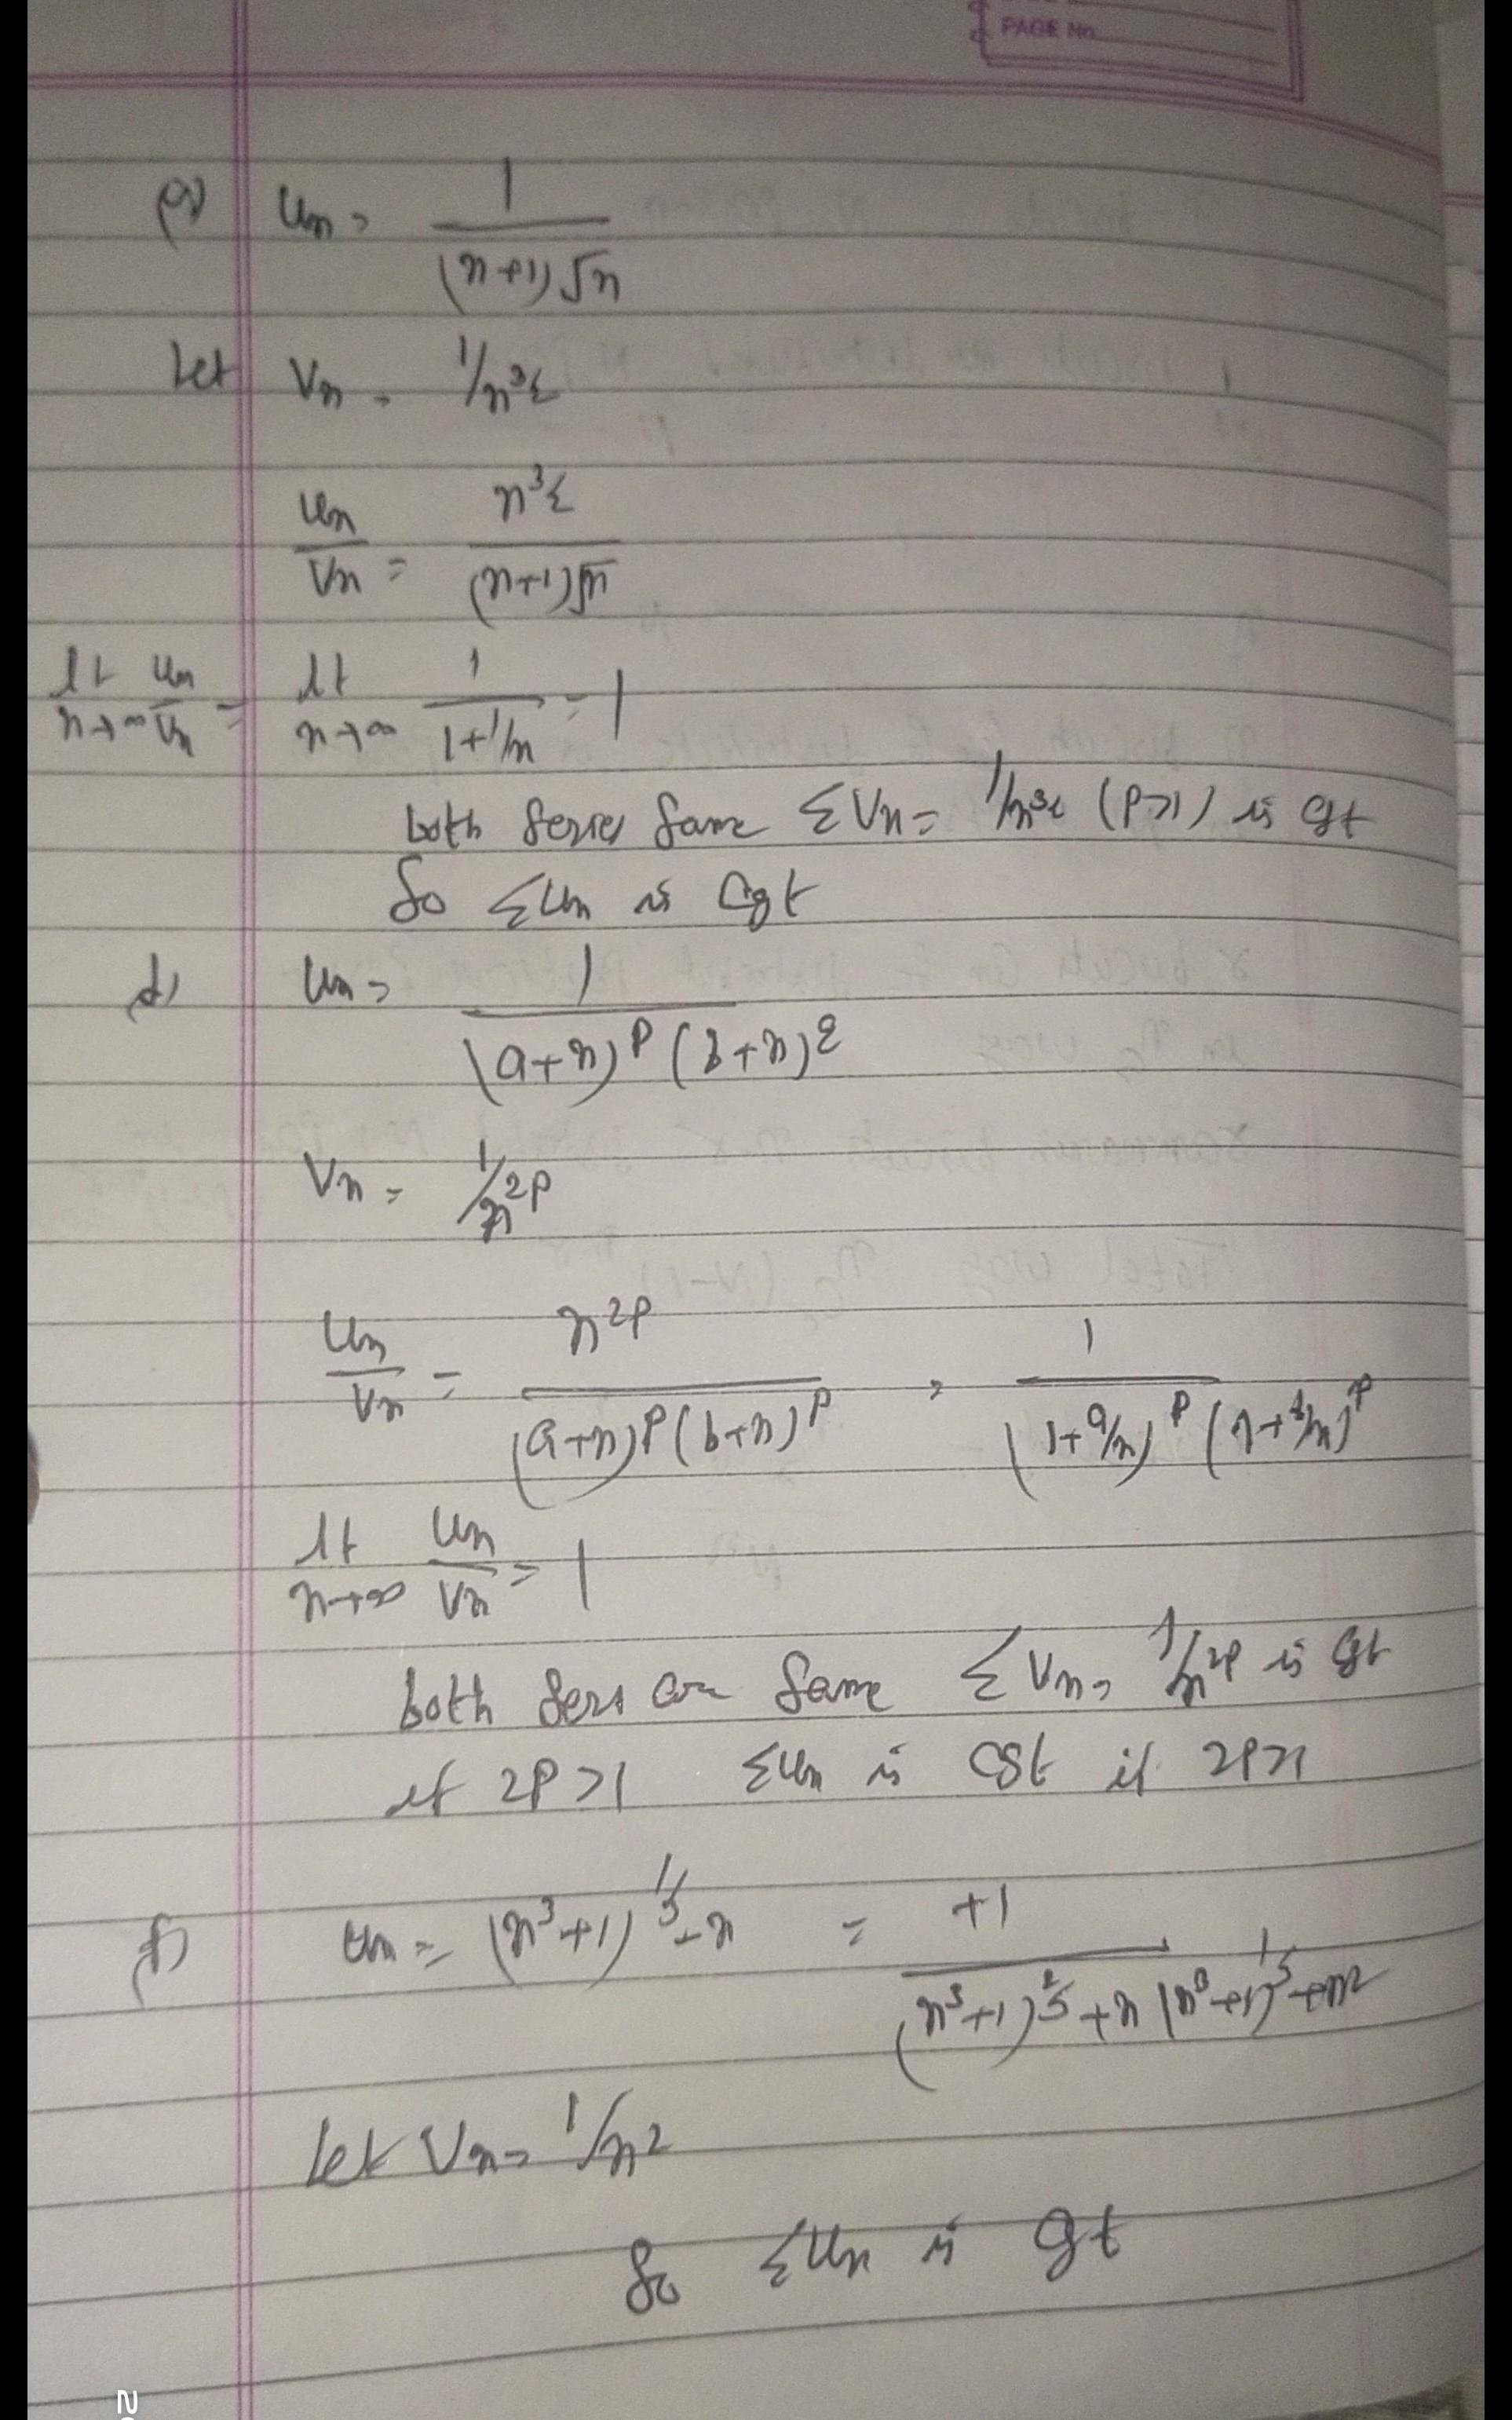 PAGE No.
Un = 1/((n+1)√n)
Let Vn = 1/n^3/2
Un/Vn = n^3/2/((n+1)√n)
lt n→∞ Un/Vn = lt n→∞ 1/(1+1/n) = 1
both series same ΣVn = 1/n^3/2 (P>1) is cgt
So ΣUn is cgt
d) Un = 1/((a+n)^P (b+n)^q)
Vn = 1/n^2P
Un/Vn = n^2P/((a+n)^P (b+n)^P) = 1/((1+a/n)^P (1+b/n)^P)
lt n→∞ Un/Vn = 1
both are same ΣVn = 1/n^2P is cgt
if 2P>1 ΣUn is cgt if 2P>1
f) Un = (n^3+1)^1/3 - n = +1/((n^3+1)^2/3 + n(n^3+1)^1/3 + n^2)
let Vn = 1/n^2
So ΣUn is cgt